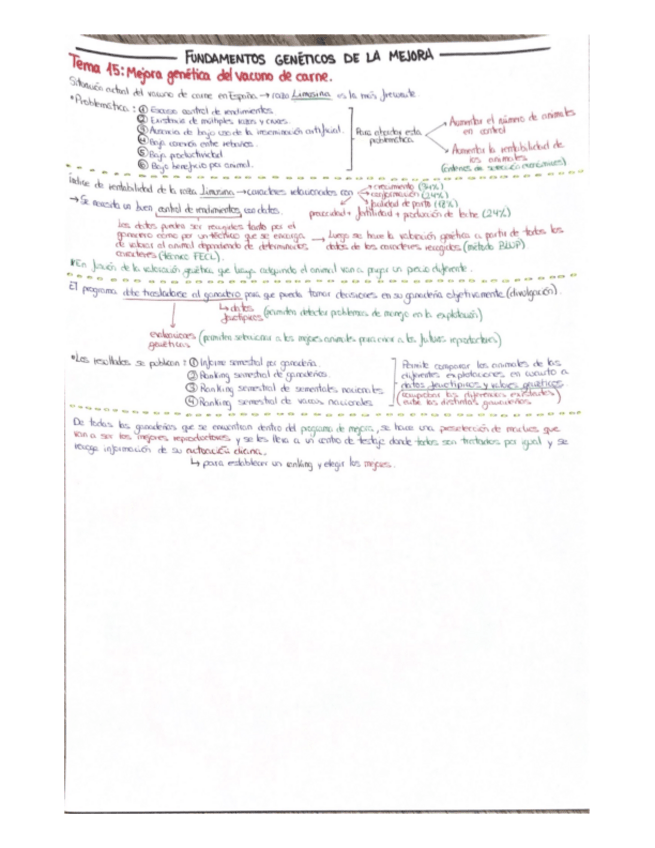 FUNDAMENTOS GENÉTICOS DE LA MEJORA
Tema 15: Mejora genética del vacuno de carne.
Situación actual del vacuno de carne en España → raza Limusina es la más frecuente.
*Problemática: ① Escaso control de rendimientos.
② Existencia de múltiples razas y cruces.
③ Ausencia de bajo uso de la inseminación artificial.
④ Baja conexión entre rebaños.
⑤ Baja productividad
⑥ Bajo beneficio por animal.
Para afrontar esta problemática
Aumentar el número de animales en control
Aumentar la rentabilidad de los animales
(criterios de selección económicos)
Índice de rentabilidad de la raza Limusina → caracteres relacionados con
crecimiento (34%)
conformación (24%)
facilidad de parto (18%)
precocidad + fertilidad + producción de leche (24%)
→ Se necesita un buen control de rendimientos con datos.
Los datos pueden ser recogidos tanto por el
ganadero como por un técnico que se encarga
de valorar el animal dependiendo de determinados
caracteres (técnico FECL).
→ Luego se hace la valoración genética a partir de todos los
datos de los caracteres recogidos (método BLUP)
*En función de la valoración genética que haya adquirido el animal van a pagar un precio diferente.
El programa debe trasladarse al ganadero para que pueda tomar decisiones en su ganadería objetivamente (divulgación).
↳ datos fenotípicos (permiten detectar problemas de manejo en la explotación)
evaluaciones genéticas (permiten seleccionar a los mejores animales para criar a los futuros reproductores)
*Los resultados se publican: ① Informe semestral por ganadería.
② Ranking semestral de ganaderías.
③ Ranking semestral de sementales nacionales
④ Ranking semestral de vacas nacionales
Permite comparar los animales de las
diferentes explotaciones en cuanto a
datos fenotípicos y valores genéticos
(comprobar las diferencias existentes
entre las distintas ganaderías)
De todas las ganaderías que se encuentran dentro del programa de mejora, se hace una preselección de machos que
van a ser los mejores reproductores y se les lleva a un centro de testaje donde todos son tratados por igual y se
recoge información de su
↳ para establecer un ranking y elegir los mejores.